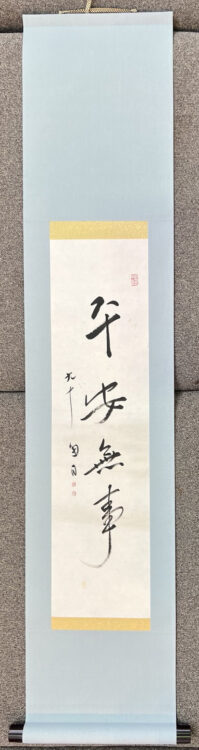 平安無事
九十